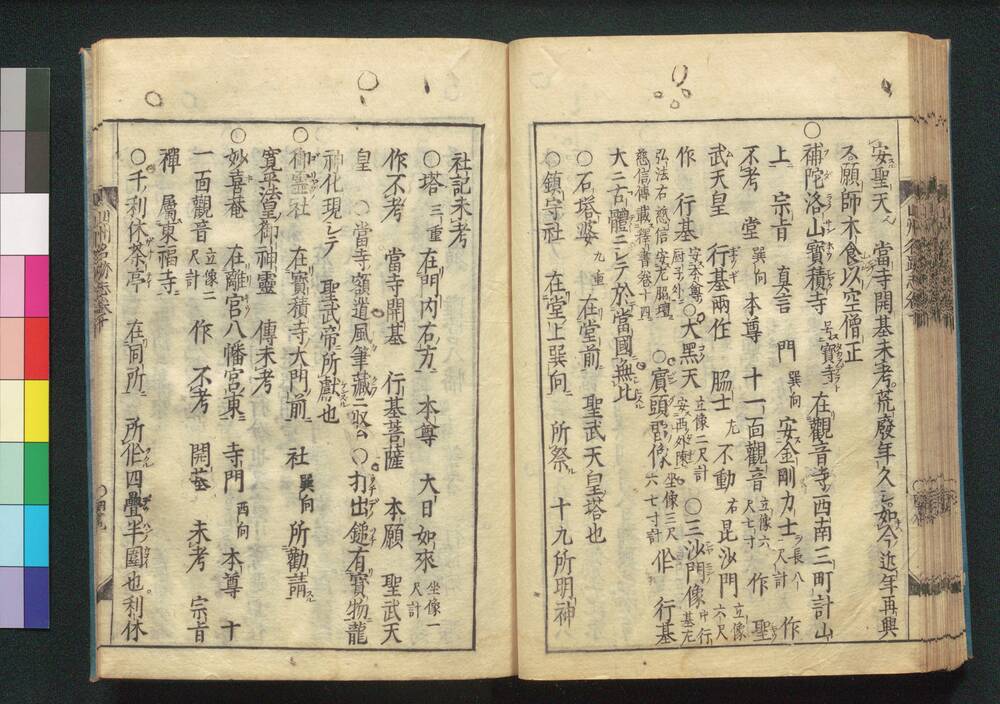 安聖天 當寺開基未考荒廢年久シ如今近年再興
ス願師木食以空僧正
○補陀洛山寶積寺 号寶寺 在觀音寺西南三町計山
上 宗旨 真言 門 巽向 安金剛力士 長八尺計 作
不考 堂 巽向 本尊 十一面觀音 立像六尺七寸 作 聖
武天皇 行基兩作 脇士 左 不動 右 毘沙門 立像六尺
作 行基 安本尊厨子外 ○大黑天 立像二尺計 ○三沙門像 中行基左
弘法右慈信安老脇壇 安再外陳
慈信傳載釋書卷十四 ○賓頭盧像 坐像三尺六七寸計 作 行基
大二古體ニシテ於當國無比
○石塔婆 九重 在堂前 聖武天皇塔也
○鎮守社 在堂上巽向 所祭 十九所明神
社記未考
○塔 三重 在門内右方 本尊 大日如來 坐像一尺計
作不考 當寺開基 行基菩薩 本願 聖武天
皇 ○當寺額道風筆藏ニ収ム ○打出鎚有寶物龍
神化現シテ 聖武帝所獻也
○御靈社 在寶積寺大門前 社 巽向 所勸請
寬平法皇御神靈 傳未考
○妙喜菴 在離宮八幡宮東 寺門 西向 本尊 十
一面觀音 立像二尺計 作 不考 開基 未考 宗旨
禪 屬東福寺
○千利休茶亭 在同所 所作四疊半圍也利休